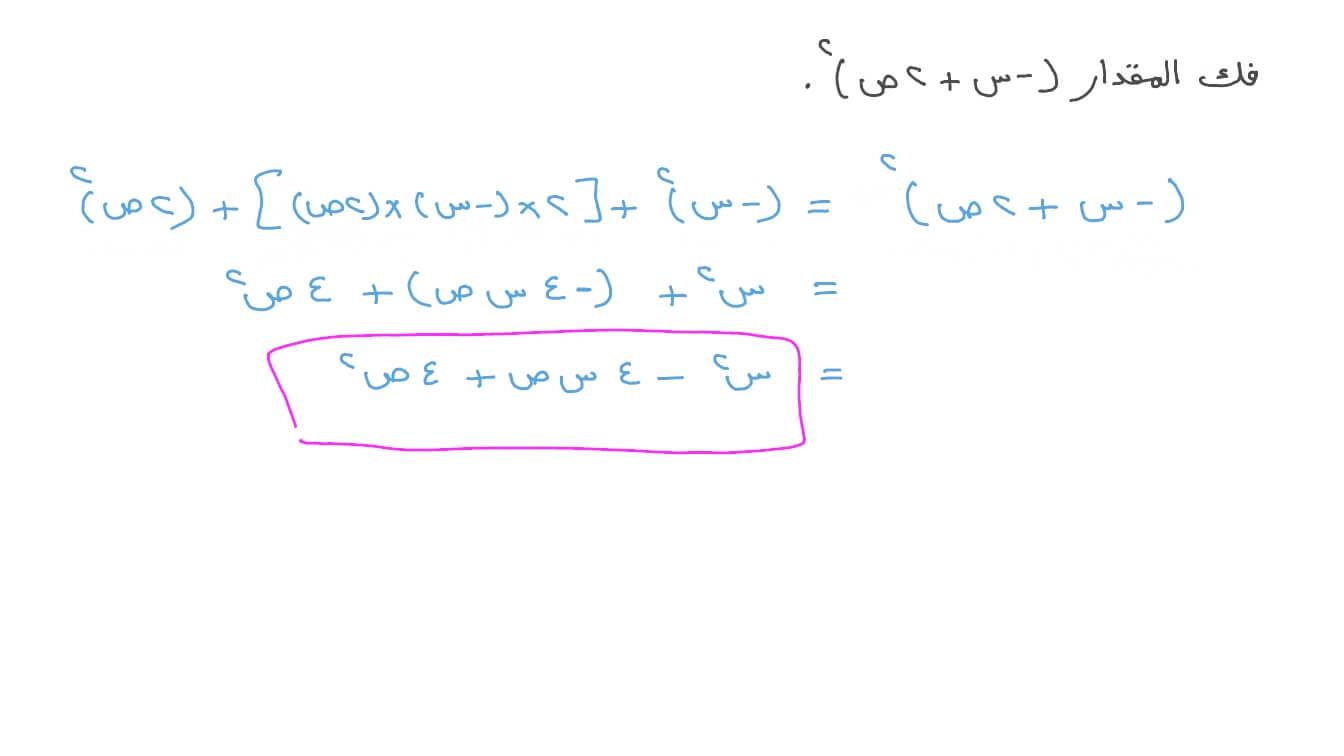 فك المقدار (-س + ٢ص)².
(-س + ٢ص)² = (-س)² + [٢×(-س)×(٢ص)] + (٢ص)²
= س² + (-٤ س ص) + ٤ ص²
= س² - ٤ س ص + ٤ص²